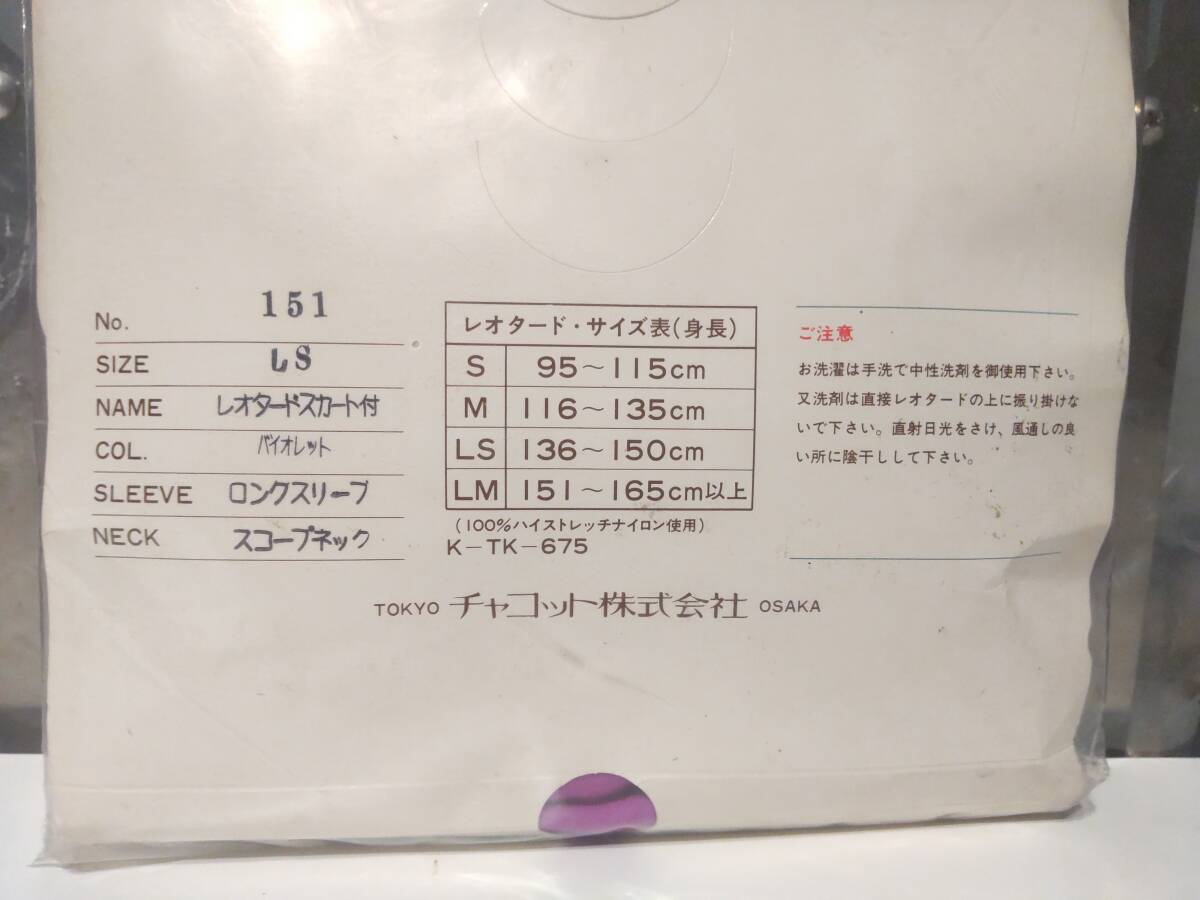 No. 151
SIZE LS
NAME レオタードスカート付
COL. バイオレット
SLEEVE ロンクスリーブ
NECK スコープネック
レオタード・サイズ表(身長)
S 95～115cm
M 116～135cm
LS 136～150cm
LM 151～165cm以上
(100%ハイストレッチナイロン使用)
K-TK-675
ご注意
お洗濯は手洗で中性洗剤を御使用下さい。
又洗剤は直接レオタードの上に振り掛けな
いで下さい。直射日光をさけ、風通しの良
い所に陰干しして下さい。
TOKYO チャコット株式会社 OSAKA